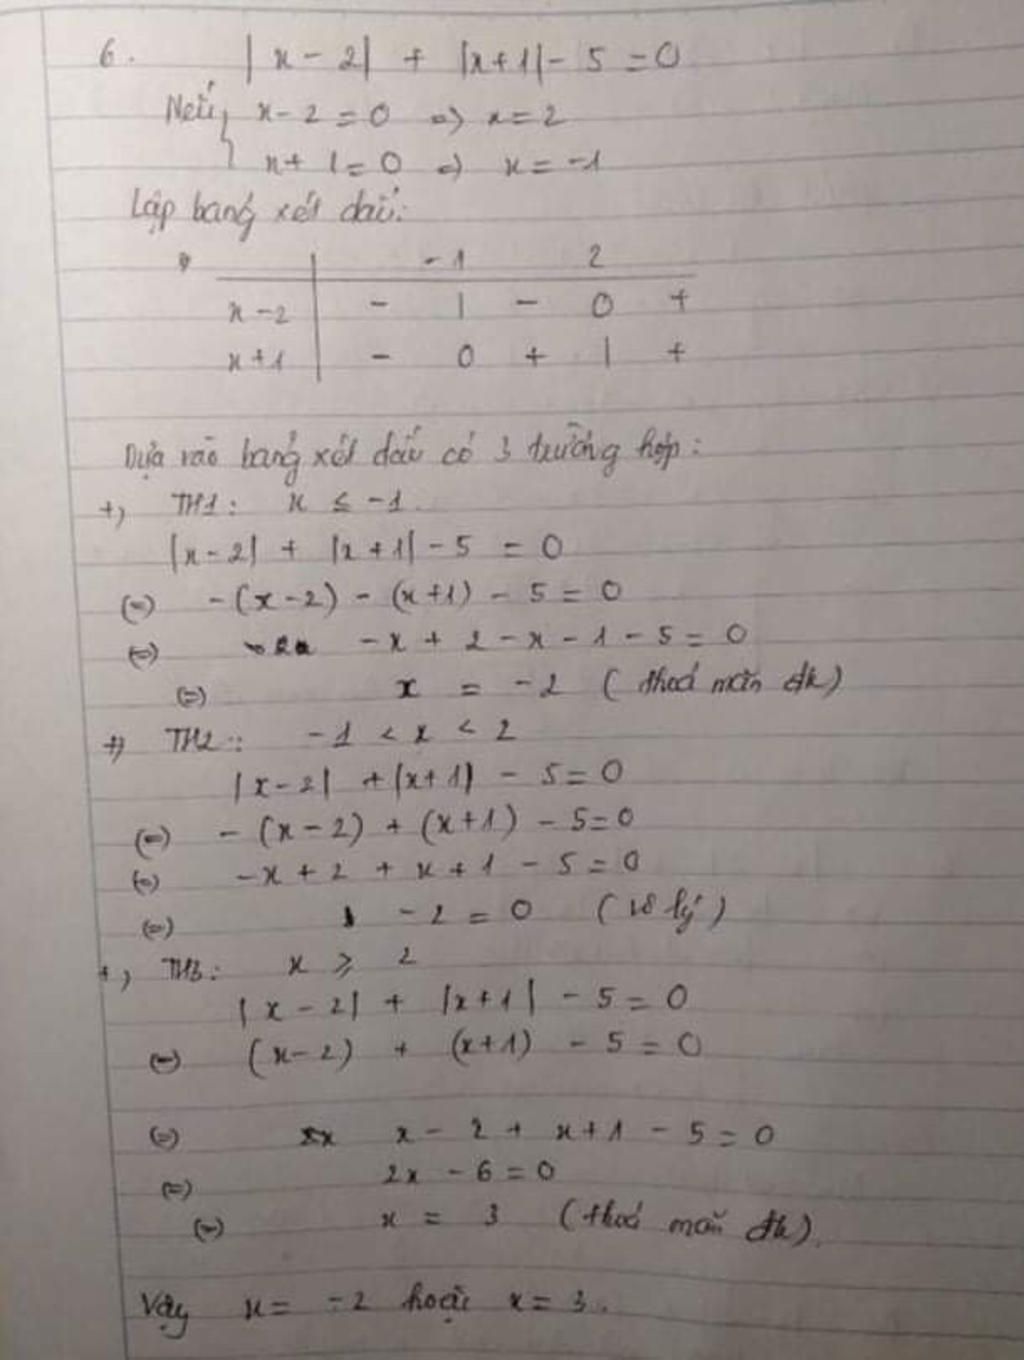 6. |x - 2| + |x+1| - 5 = 0
Nếu x - 2 = 0 => x = 2
x + 1 = 0 => x = -1
Lập bảng xét dấu:
-1 2
x - 2 - | - 0 +
x + 1 - 0 + | +
Dựa vào bảng xét dấu có 3 trường hợp:
+, TH1: x ≤ -1.
|x - 2| + |x + 1| - 5 = 0
(=) -(x - 2) - (x + 1) - 5 = 0
(=) -x + 2 - x - 1 - 5 = 0
(=) x = -2 (thoả mãn đk)
+) TH2: -1 < x < 2
|x - 2| + |x + 1| - 5 = 0
(=) - (x - 2) + (x + 1) - 5 = 0
(=) -x + 2 + x + 1 - 5 = 0
(=) -2 = 0 (vô lý)
+, TH3: x ⩾ 2
|x - 2| + |x + 1| - 5 = 0
(=) (x - 2) + (x + 1) - 5 = 0
(=) x - 2 + x + 1 - 5 = 0
(=) 2x - 6 = 0
(=) x = 3 (thoả mãn đk).
Vậy x = -2 hoặc x = 3.